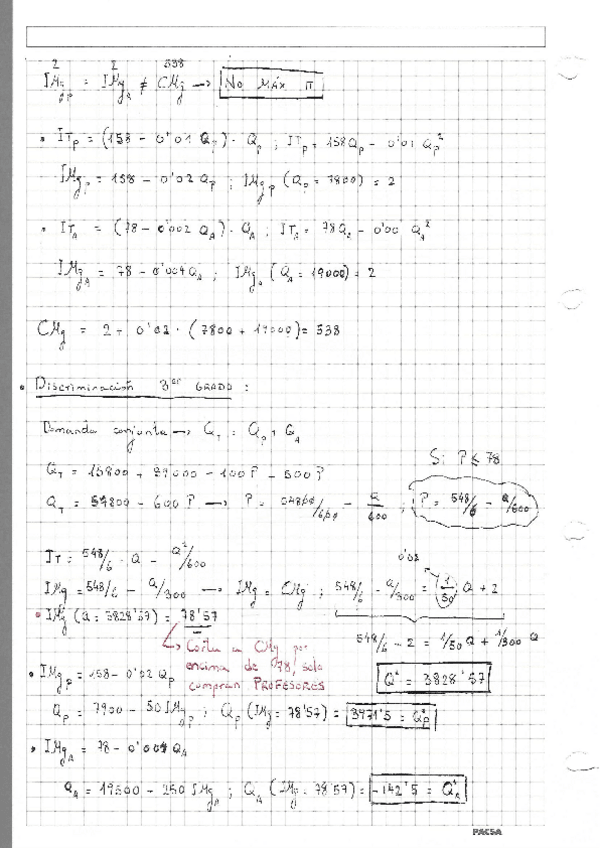 2 2 538
IMg_P = IMg_A ≠ CMg → No MÁX Π
• IT_P = (158 - 0'01 Q_P) · Q_P ; IT_P = 158Q_P - 0'01 Q_P²
IMg_P = 158 - 0'02 Q_P ; IMg_P (Q_P = 7800) = 2
• IT_A = (78 - 0'002 Q_A) · Q_A ; IT_A = 78Q_A - 0'00 Q_A²
IMg_A = 78 - 0'004 Q_A ; IMg_A (Q_A = 19000) = 2
CMg = 2 + 0'02 · (7800 + 19000) = 538
• Discriminación 3er GRADO :
Demanda conjunta → Q_T = Q_P + Q_A
Si P ≤ 78
Q_T = 15800 + 39000 - 100P - 500P
Q_T = 54800 - 600P → P = 54800/600 - Q/600 ; P = 548/6 - Q/600
IT = 548/6 · Q - Q²/600
0'02
IMg = 548/6 - Q/300 → IMg = CMg ; 548/6 - Q/300 = (1/50) Q + 2
• IMg (Q = 3828'57) = 78'57
548/6 - 2 = 1/50 Q + 1/300 Q
↳ Corta a CMg por
encima de 78/ solo
compran PROFESORES
Q* = 3828'57
• IMg_P = 158 - 0'02 Q_P
Q_P = 7900 - 50 IMg_P ; Q_P (IMg = 78'57) = 3971'5 = Q_P*
• IMg_A = 78 - 0'004 Q_A
Q_A = 19500 - 250 IMg_A ; Q_A (IMg = 78'57) = -142'5 = Q_A*
PACSA